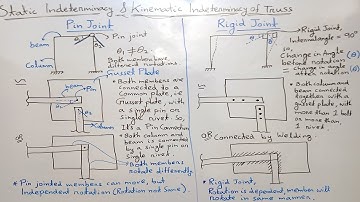 Static Indeterminacy & Kinematic Indeterminacy of Truss
Pin Joint
beam
Column
Pin joint
θ₁
θ₂
θ₁ ≠ θ₂
Both members have
different rotations
Gusset Plate
• Both members are
connected to a
Common plate, i.e
Gusset plate, with
a single pin on
single rivet. So,
It's a Pin Connection
Pin
beam
Column
• Both column and
beam is connected
by a single pin or
single rivet
• Both members
rotate differently.
OR
• Pin jointed members can move, but
Independent rotation (Rotation not Same).
Rigid Joint
• Rigid Joint,
Internal angle = 90°
so,
Change in Angle
before rotation (θ)
= change in angle
after rotation (θ)
• Both column and
beam connected
together with a
gusset plate, with
more than 1 bolt
or more than
1 rivet.
OR Connected by Welding.
• Rigid Joint,
Rotation is dependent, member will
rotate in same manner.